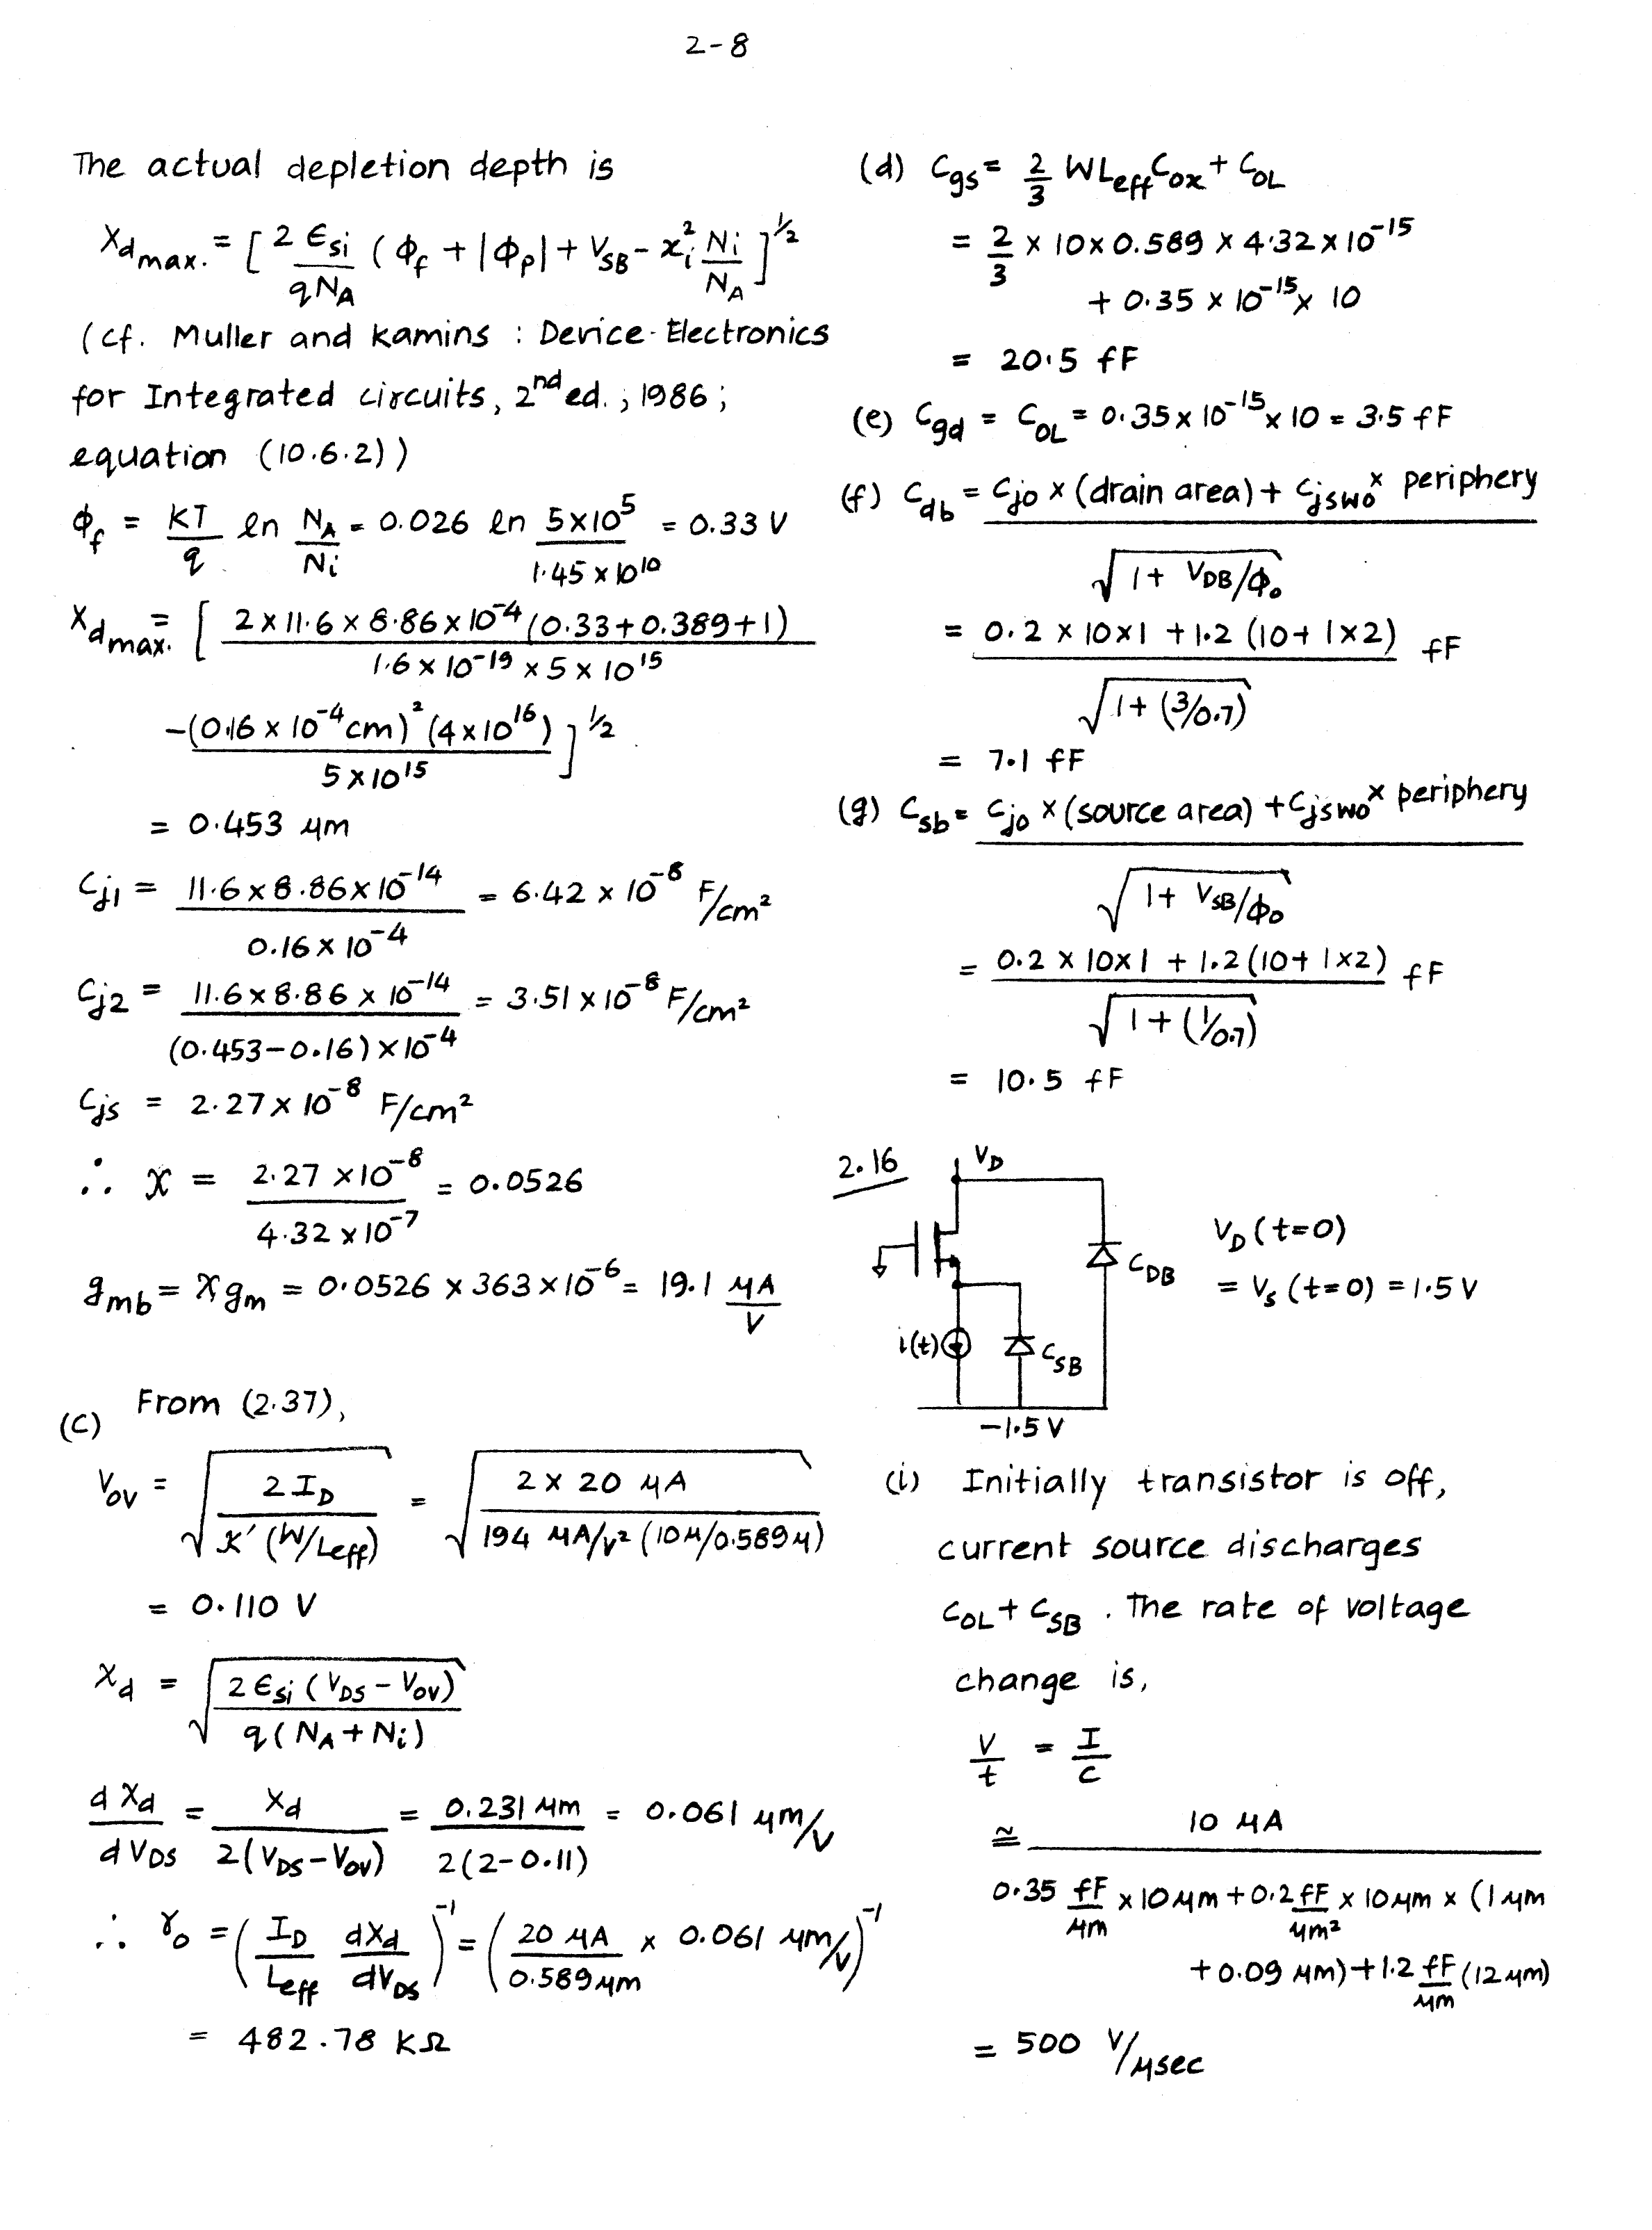 2-8
The actual depletion depth is
Xd max. = [ 2 ϵsi / qNA ( Φf + |Φp| + VSB - xi² Ni / NA ]^½
(cf. Muller and Kamins : Device Electronics
for Integrated circuits, 2nd ed., 1986;
equation (10.6.2))
Φf = KT / q ln NA / Ni = 0.026 ln 5×10^5 / 1.45×10^10 = 0.33 V
Xd max. = [ 2×11.6×8.86×10^-4 (0.33+0.389+1) / 1.6×10^-19 × 5×10^15
-(0.16×10^-4 cm)² (4×10^16) / 5×10^15 ]^½
= 0.453 μm
Cj1 = 11.6×8.86×10^-14 / 0.16×10^-4 = 6.42×10^-8 F/cm²
Cj2 = 11.6×8.86×10^-14 / (0.453-0.16)×10^-4 = 3.51×10^-8 F/cm²
Cjs = 2.27×10^-8 F/cm²
∴ χ = 2.27×10^-8 / 4.32×10^-7 = 0.0526
gmb = χ gm = 0.0526 × 363×10^-6 = 19.1 μA / V
(c) From (2.37),
Vov = √( 2 ID / K' (W/Leff) ) = √( 2 × 20 μA / 194 μA/V² (10μ/0.589μ) )
= 0.110 V
Xd = √( 2 ϵsi (VDS - Vov) / q (NA + Ni) )
dXd / dVDS = Xd / 2(VDS - Vov) = 0.231 μm / 2(2-0.11) = 0.061 μm/V
∴ ro = ( ID / Leff dXd / dVDS )^-1 = ( 20 μA / 0.589 μm × 0.061 μm/V )^-1
= 482.78 KΩ
(d) Cgs = 2/3 W Leff Cox + COL
= 2/3 × 10×0.589 × 4.32×10^-15
+ 0.35 × 10^-15 × 10
= 20.5 fF
(e) Cgd = COL = 0.35×10^-15 × 10 = 3.5 fF
(f) Cdb = Cjo × (drain area) + Cjswo × periphery
√( 1 + VDB/Φo )
= 0.2 × 10×1 + 1.2 (10+1×2) fF
√( 1 + (3/0.7) )
= 7.1 fF
(g) Csb = Cjo × (source area) + Cjswo × periphery
√( 1 + VSB/Φo )
= 0.2 × 10×1 + 1.2 (10+1×2) fF
√( 1 + (1/0.7) )
= 10.5 fF
2.16
VD
CDB
i(t)
CSB
-1.5 V
VD (t=0)
= Vs (t=0) = 1.5 V
(i) Initially transistor is off,
current source discharges
COL + CSB . The rate of voltage
change is,
V / t = I / C
≅ 10 μA
0.35 fF/μm × 10 μm + 0.2 fF/μm² × 10 μm × (1 μm
+ 0.09 μm) + 1.2 fF/μm (12 μm)
= 500 V/μsec